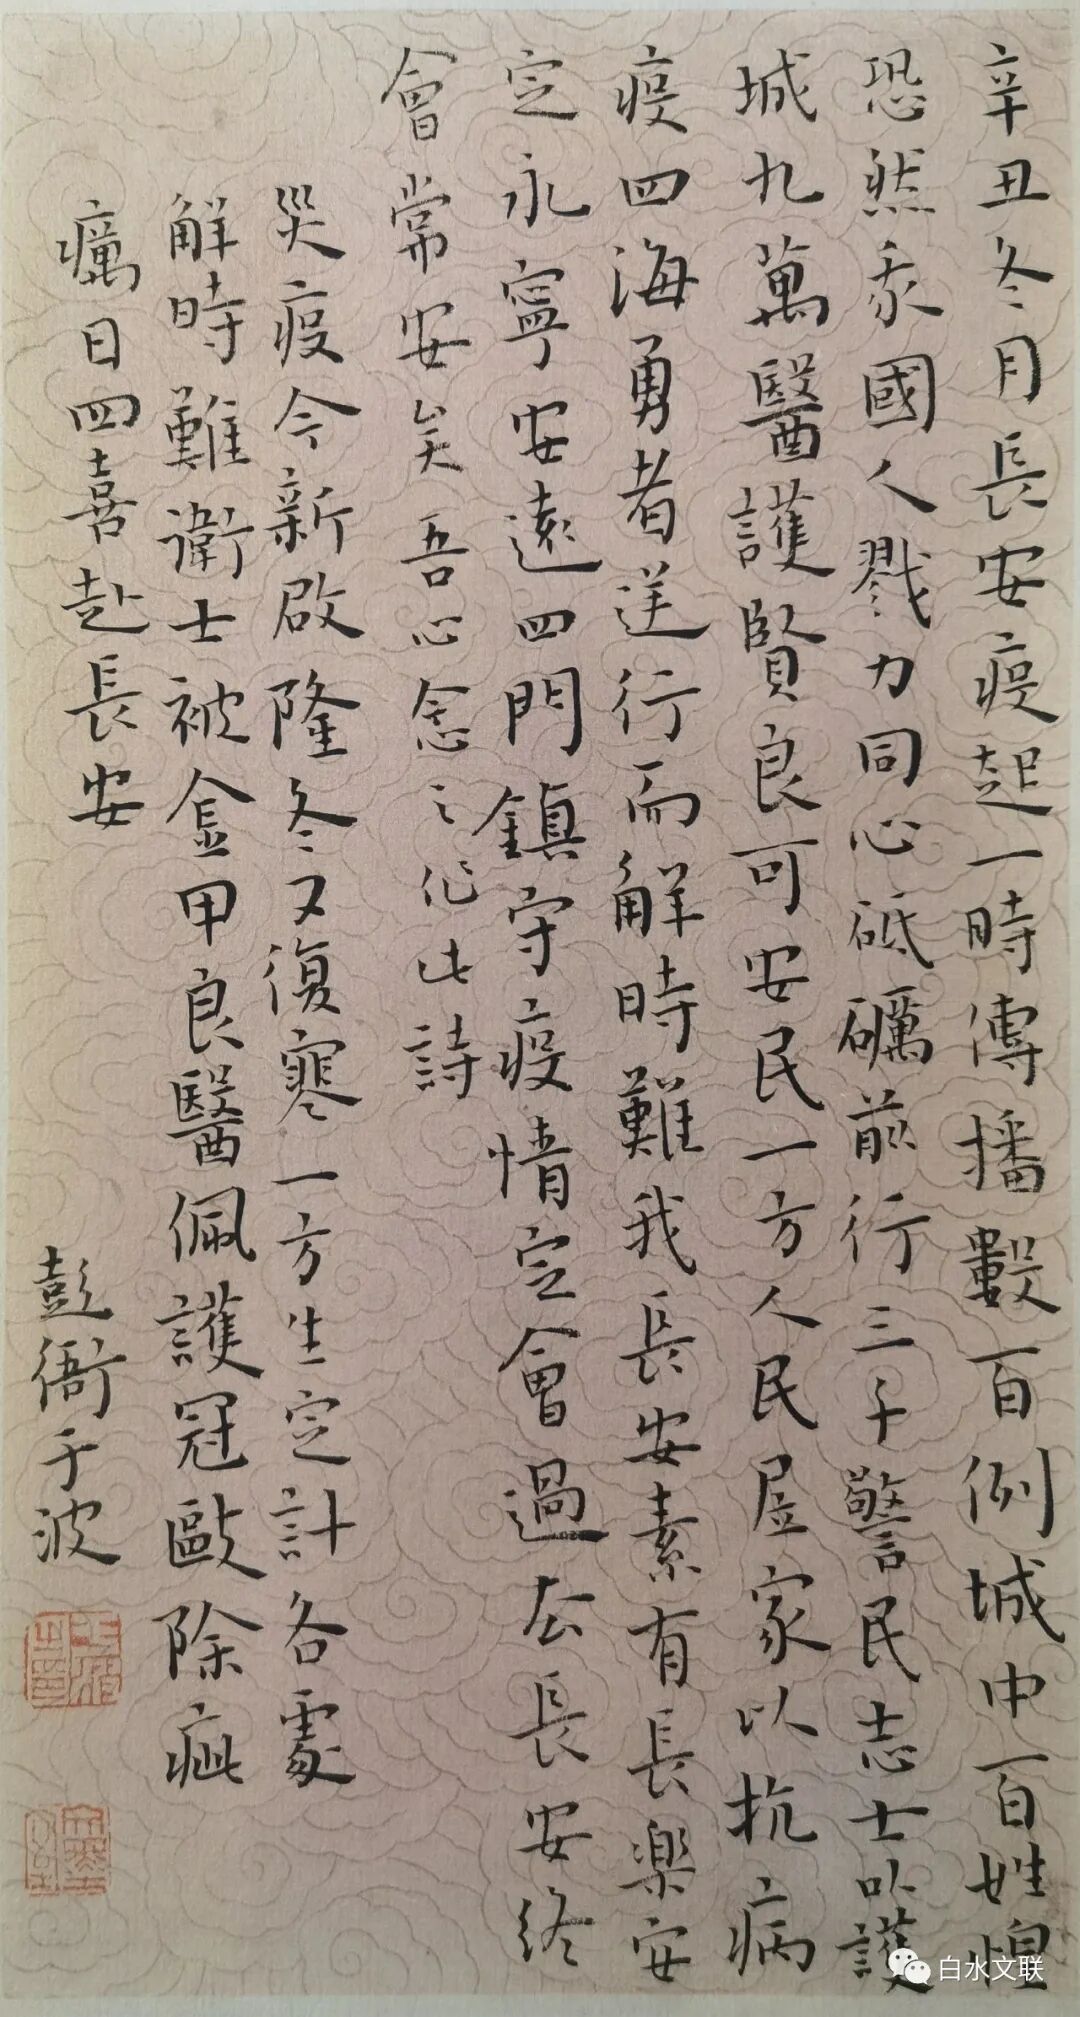 辛丑冬月長安疫起一時傳播數百例城中百姓惶
恐然我國人戮力同心砥礪前行三千警民志士以護
城九萬醫護賢良可安民一方人民居家以抗病
疫四海勇者逆行而解時難我長安素有長樂安
定永寧安遠四門鎮守疫情定會過去長安終
會常安矣吾心念之作此詩
災疫今新啟隆冬又復寒一方生定計各處
解時難衛士被金甲良醫佩護冠毆除疵
癘日四喜赴長安
彭衙于波
白水文联